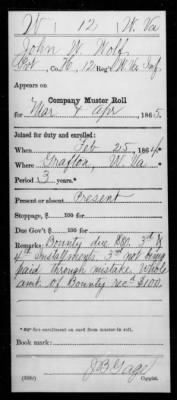 W 12 W. Va
John W. Wolf
Co. H, 12 Reg't W. Va. Inf.
Appears on
Company Muster Roll
for Mar & Apr, 1865.
Joined for duty and enrolled:
When Feb 25, 1864
Where Grafton, W. Va
Period 3 years.*
Present or absent Present
Stoppage, $ 100 for
Due Gov't $ 100 for
Remarks: Bounty due $80. 3d &
4th Installments 3d not being
paid through mistake. Whole
amt. of Bounty rec'd $100.
*See enrollment on card from muster-in roll.
Book mark:
J B Gage
(358) Copyist.